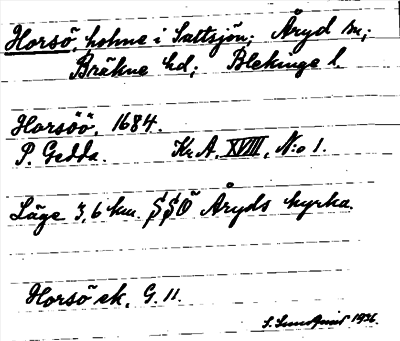 Horsö, holme i Saltsjön; Åryd sn;
Bräkne hd; Blekinge l.
Horsöö, 1684.
P. Gedda. Kr. A. XVIII, N:o 1.
Läge 3,6 km. SSO Åryds kyrka.
Horsö ek. G. 11.
S. Sundquist 1926.